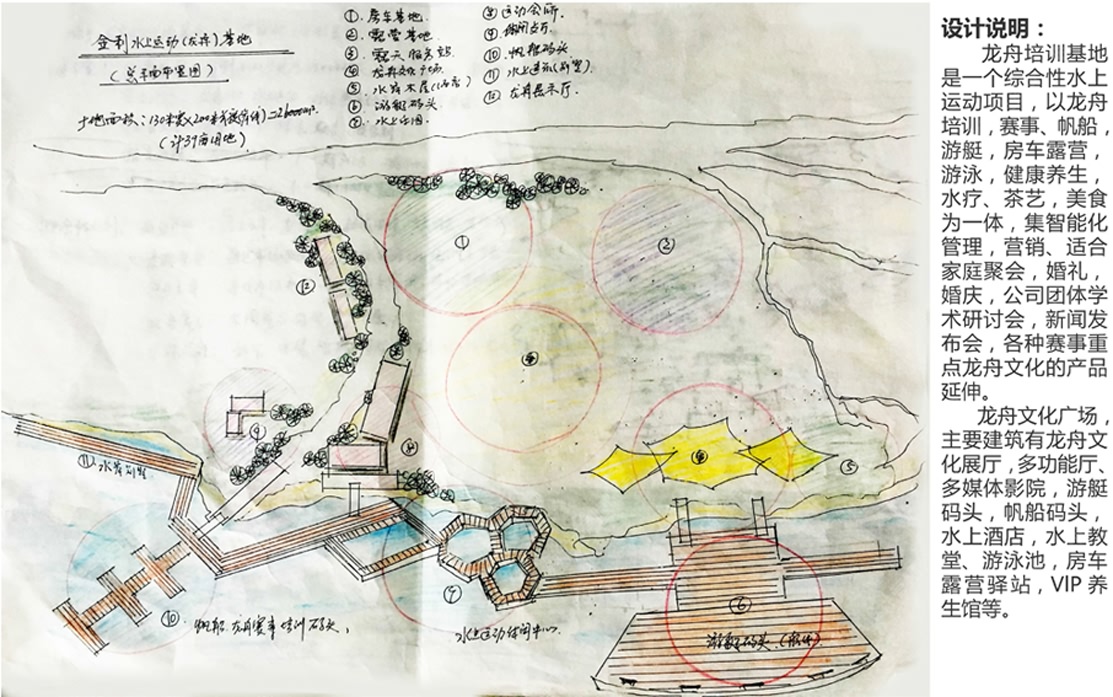 金利水上运动(龙舟)基地
(总平面布置图)
土地面积：130米宽×200米 =26000m².
(计39亩用地)
①.房车基地.
②.露营基地.
③.露天服务站
④.龙舟文化广场.
⑤.水岸木屋(酒店)
⑥.游艇码头
⑦.水上乐园.
⑧运动会所.
⑨.
⑩.帆船码头
⑪.水上 (别墅).
⑫.龙舟展示厅.
①
②
⑫
④
⑨
⑧
⑧
⑤
⑪.水岸别墅
⑦
⑥
⑩
帆船.龙舟赛事培训码头、
水上运动休闲中心.
游艇码头.
设计说明：
龙舟培训基地
是一个综合性水上
运动项目，以龙舟
培训，赛事、帆船，
游艇，房车露营，
游泳，健康养生，
水疗、茶艺，美食
为一体，集智能化
管理，营销、适合
家庭聚会，婚礼，
婚庆，公司团体学
术研讨会，新闻发
布会，各种赛事重
点龙舟文化的产品
延伸。
龙舟文化广场，
主要建筑有龙舟文
化展厅，多功能厅、
多媒体影院，游艇
码头，帆船码头，
水上酒店，水上教
堂、游泳池，房车
露营驿站，VIP 养
生馆等。